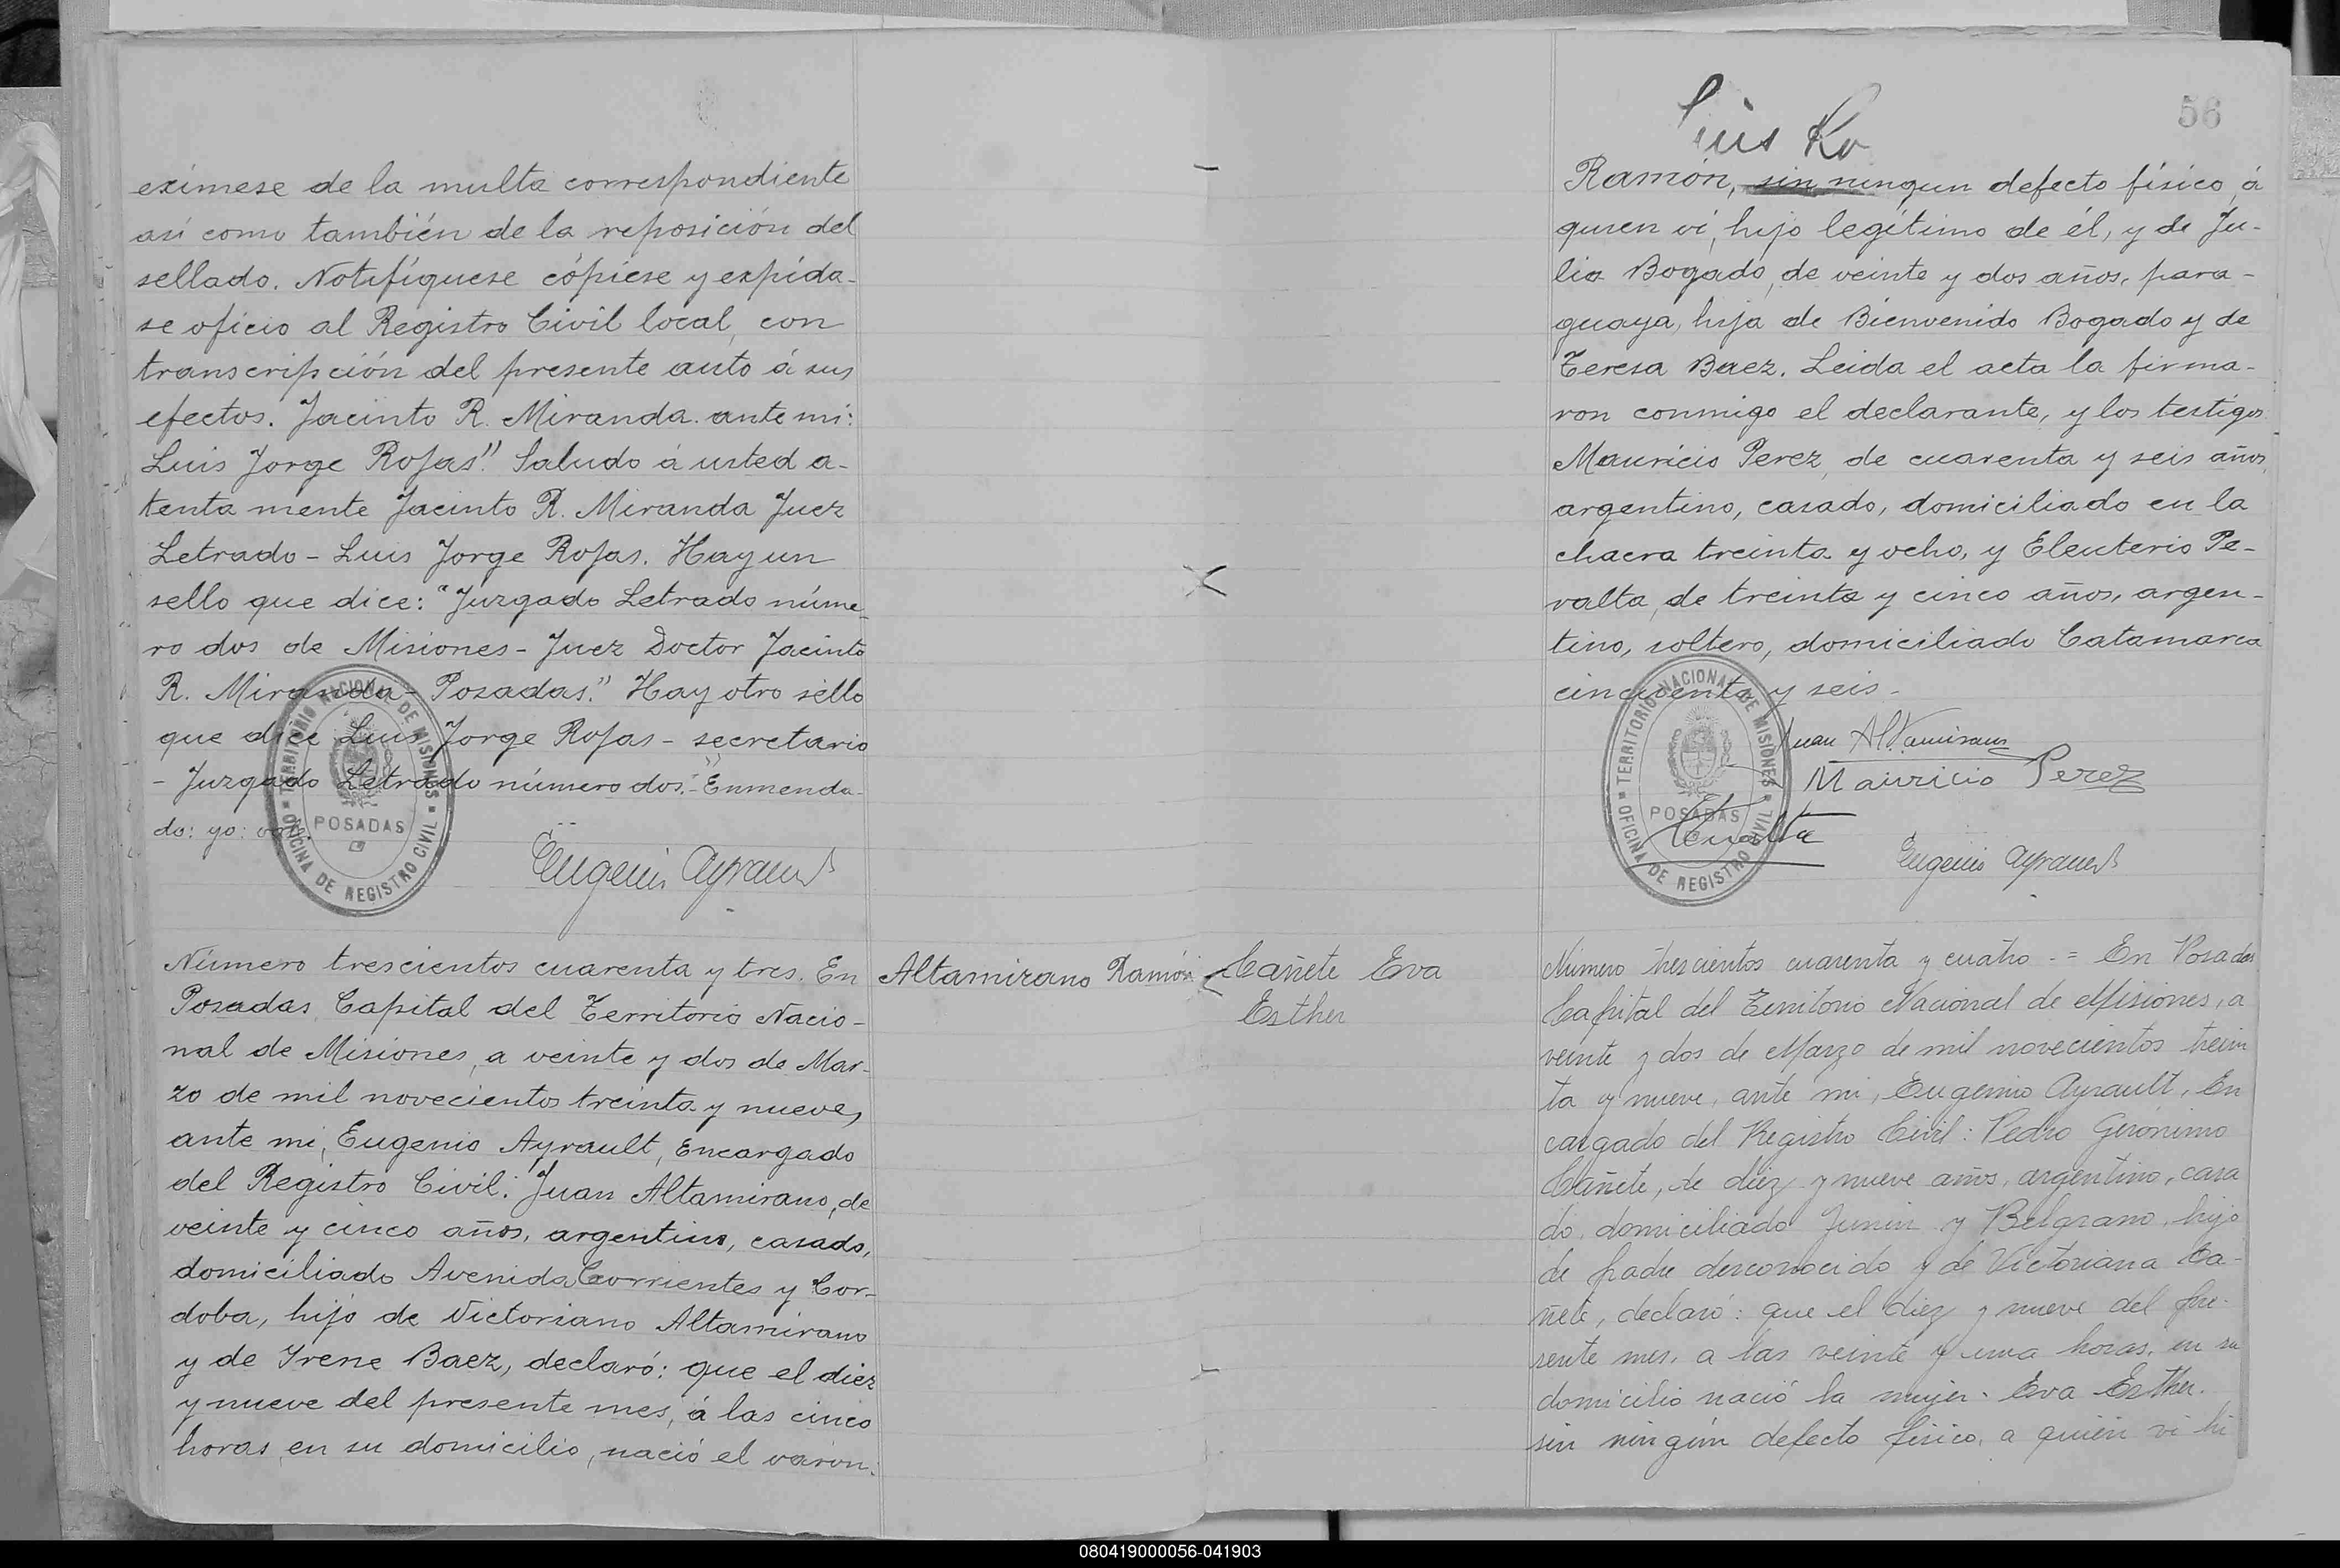 exímese de la multa correspondiente
así como también de la reposición del
sellado. Notifíquese cópiese y expída-
se oficio al Registro Civil local, con
transcripción del presente auto á sus
efectos. Jacinto R. Miranda. ante mi:
Luis Jorge Rojas". Saludo á usted a-
tenta mente Jacinto R. Miranda Juez
Letrado - Luis Jorge Rojas. Hay un
sello que dice: "Juzgado Letrado núme-
ro dos de Misiones - Juez Doctor Jacinto
R. Miranda - Posadas." Hay otro sello
que dice Luis Jorge Rojas - secretario
- Juzgado Letrado número dos." - Enmenda-
do: yo: vale.
TERRITORIO NACIONAL DE MISIONES
POSADAS
OFICINA DE REGISTRO CIVIL
Eugenio Ayrault
Altamirano Ramón
Número trescientos cuarenta y tres. En
Posadas, Capital del Territorio Nacio-
nal de Misiones, a veinte y dos de Mar-
zo de mil novecientos treinta y nueve,
ante mi, Eugenio Ayrault, Encargado
del Registro Civil: Juan Altamirano, de
veinte y cinco años, argentino, casado,
domiciliado Avenida Corrientes y Cor-
doba, hijo de Victoriano Altamirano
y de Irene Baez, declaró: que el diez
y nueve del presente mes, á las cinco
horas, en su domicilio, nació el varón:
56
Ramón, sin ningun defecto físico, á
quien ví, hijo legítimo de él, y de Ju-
lia Bogado, de veinte y dos años, para-
guaya, hija de Bienvenido Bogado y de
Teresa Baez. Leida el acta la firma-
ron conmigo el declarante, y los testigos
Mauricio Perez, de cuarenta y seis años,
argentino, casado, domiciliado en la
chacra treinta y ocho, y Eleuterio Pe-
ralta, de treinta y cinco años, argen-
tino, soltero, domiciliado Catamarca
cincuenta y seis.-
Juan Altamirano
Mauricio Perez
TERRITORIO NACIONAL DE MISIONES
POSADAS
OFICINA DE REGISTRO CIVIL
Eugenio Ayrault
Cañete Eva
Esther
Número trescientos cuarenta y cuatro -= En Posadas
Capital del Territorio Nacional de Misiones, a
veinte y dos de Marzo de mil novecientos trein
ta y nueve, ante mi, Eugenio Ayrault, En
cargado del Registro Civil: Pedro Gerónimo
Cañete, de diez y nueve años, argentino, casa
do, domiciliado Junin y Belgrano, hijo
de padre desconocido y de Victoriana Ca-
ñete, declaró: que el diez y nueve del pre-
sente mes, a las veinte y una horas, en su
domicilio nació la mujer. Eva Esther.
sin ningún defecto físico, a quien vi hi
080419000056-041903